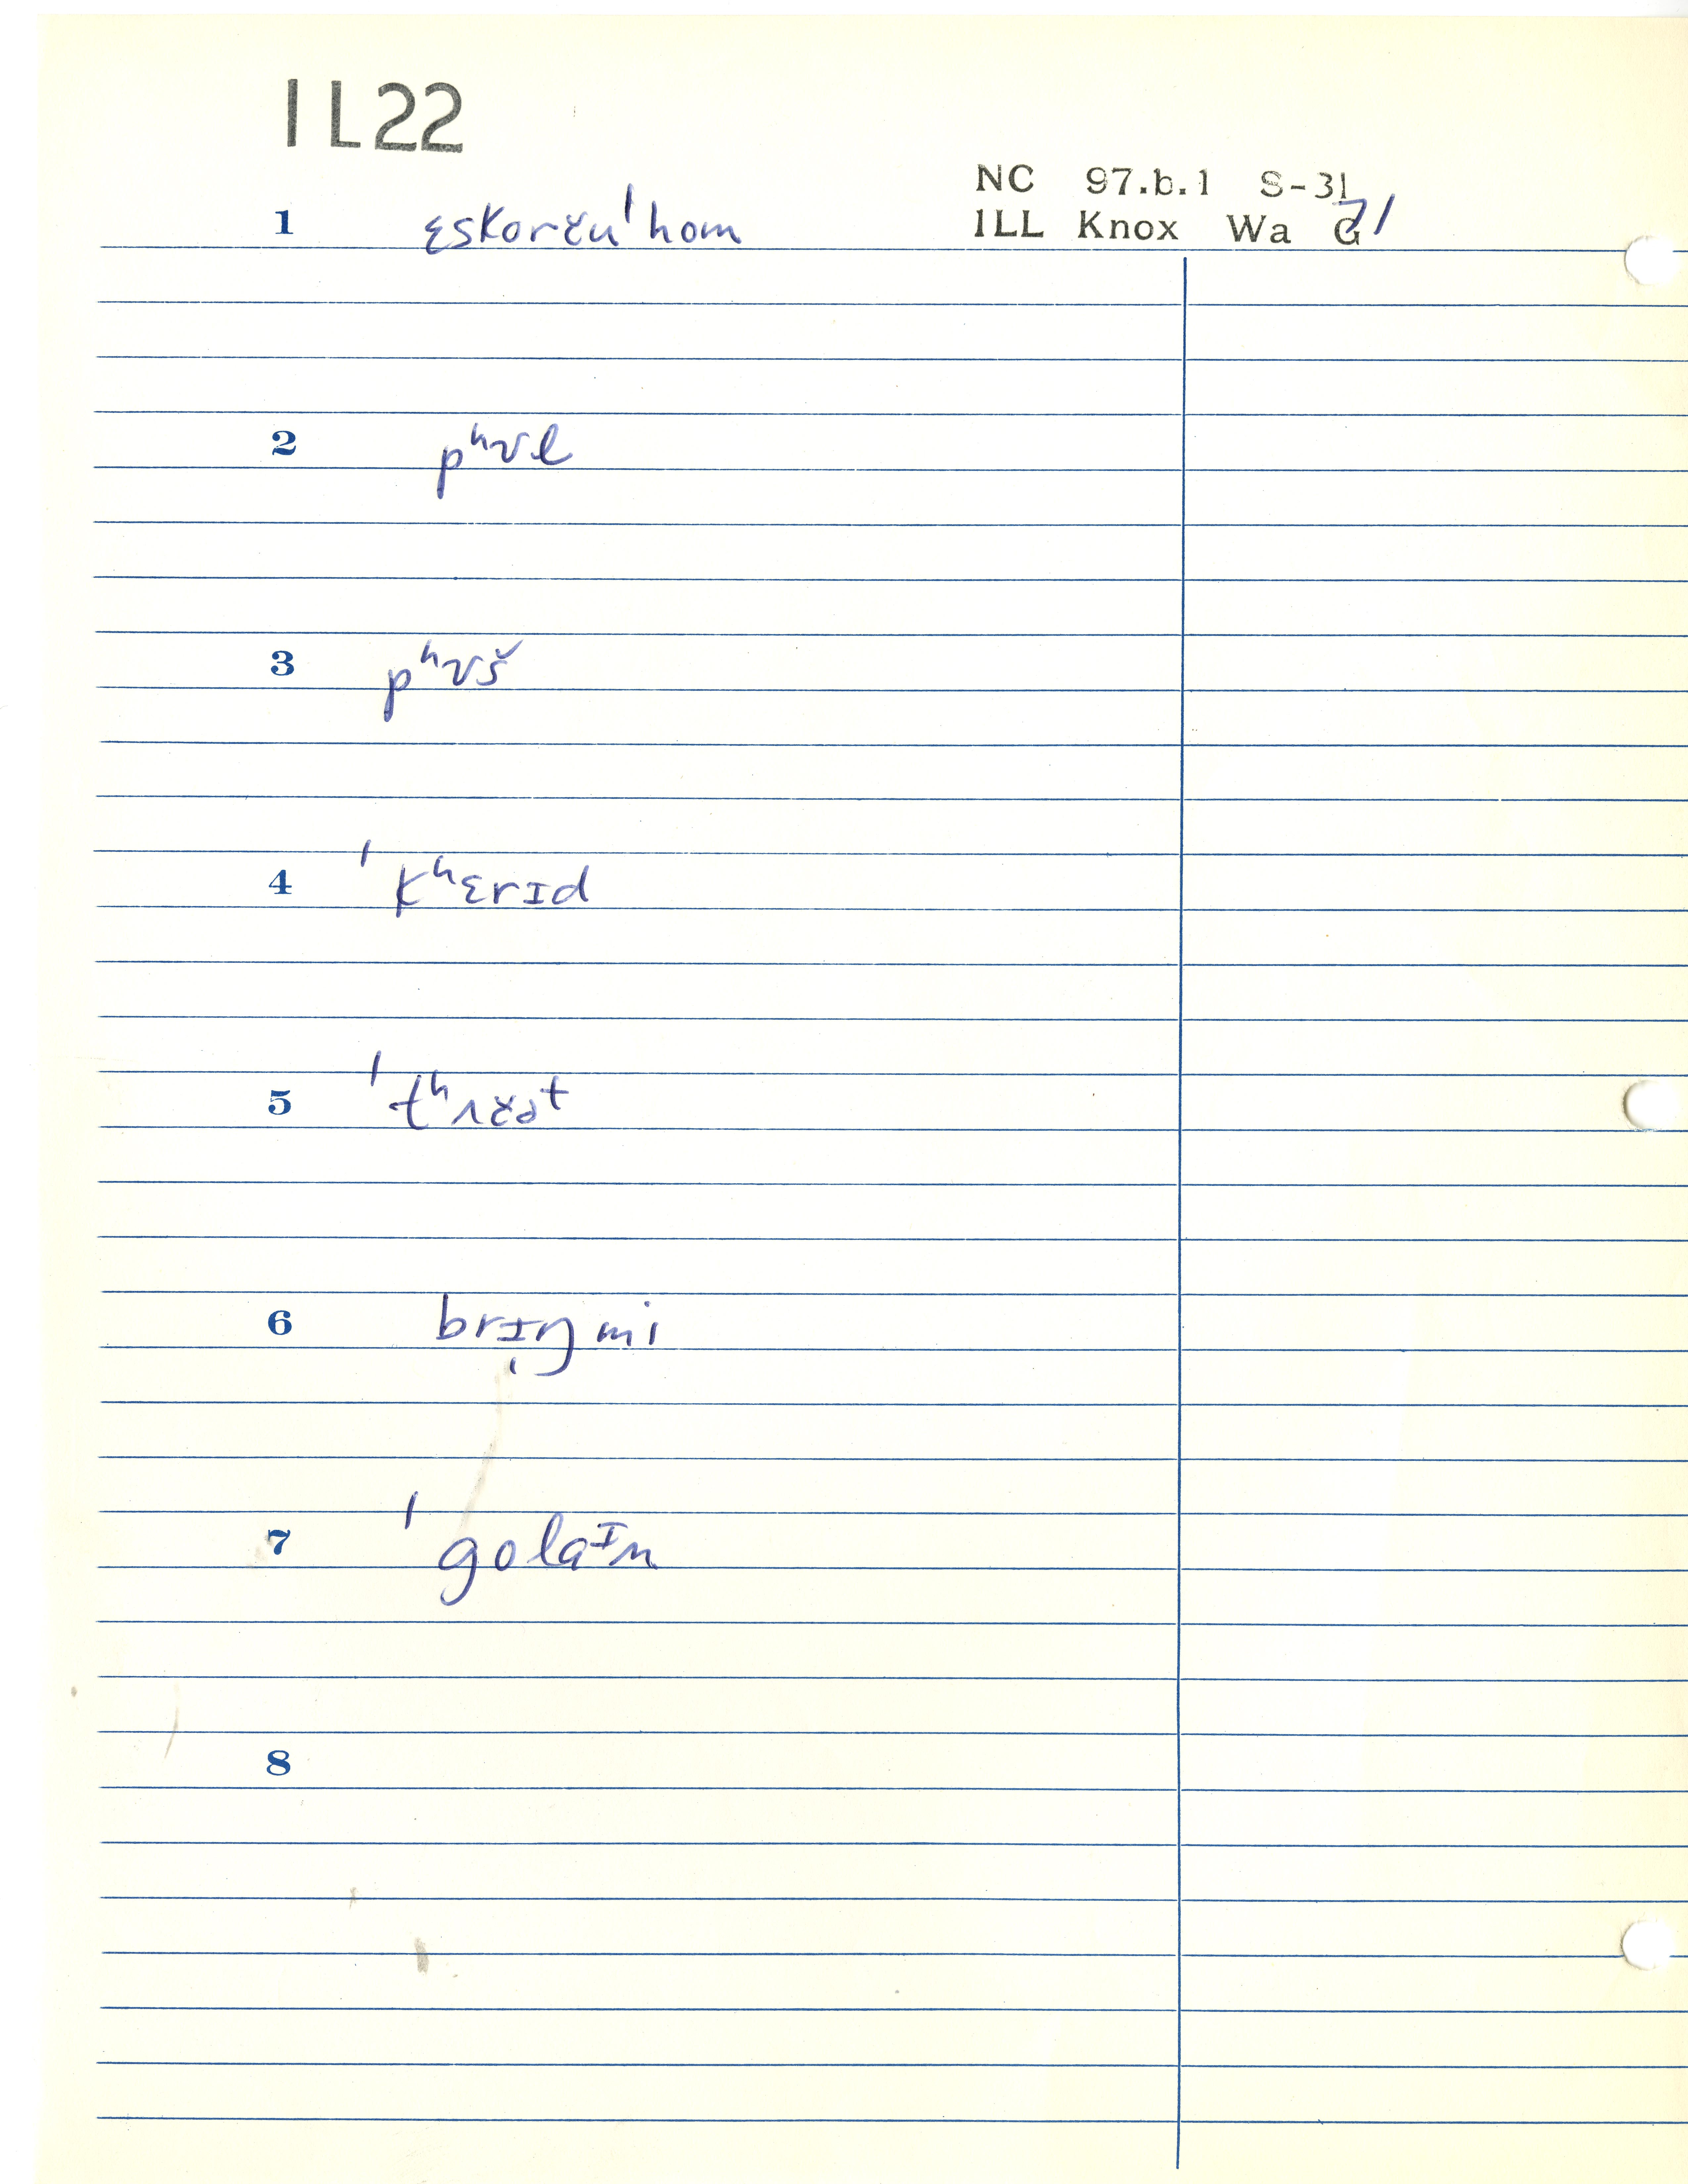 1L22
NC 97.b.1 S-31
ILL Knox Wa G 71
1 ɛskorču'hom
2 pʰʊl
3 pʰʊš
4 'kʰɛrɪd
5 'tʰʌčət
6 brɪŋ mi
7 'golaᶦn
8